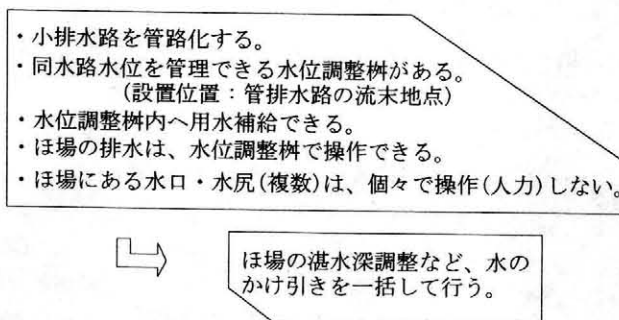 ・小排水路を管路化する。
・同水路水位を管理できる水位調整桝がある。
(設置位置：管排水路の流末地点)
・水位調整桝内へ用水補給できる。
・ほ場の排水は、水位調整桝で操作できる。
・ほ場にある水口・水尻(複数)は、個々で操作(人力)しない。
ほ場の湛水深調整など、水の
かけ引きを一括して行う。